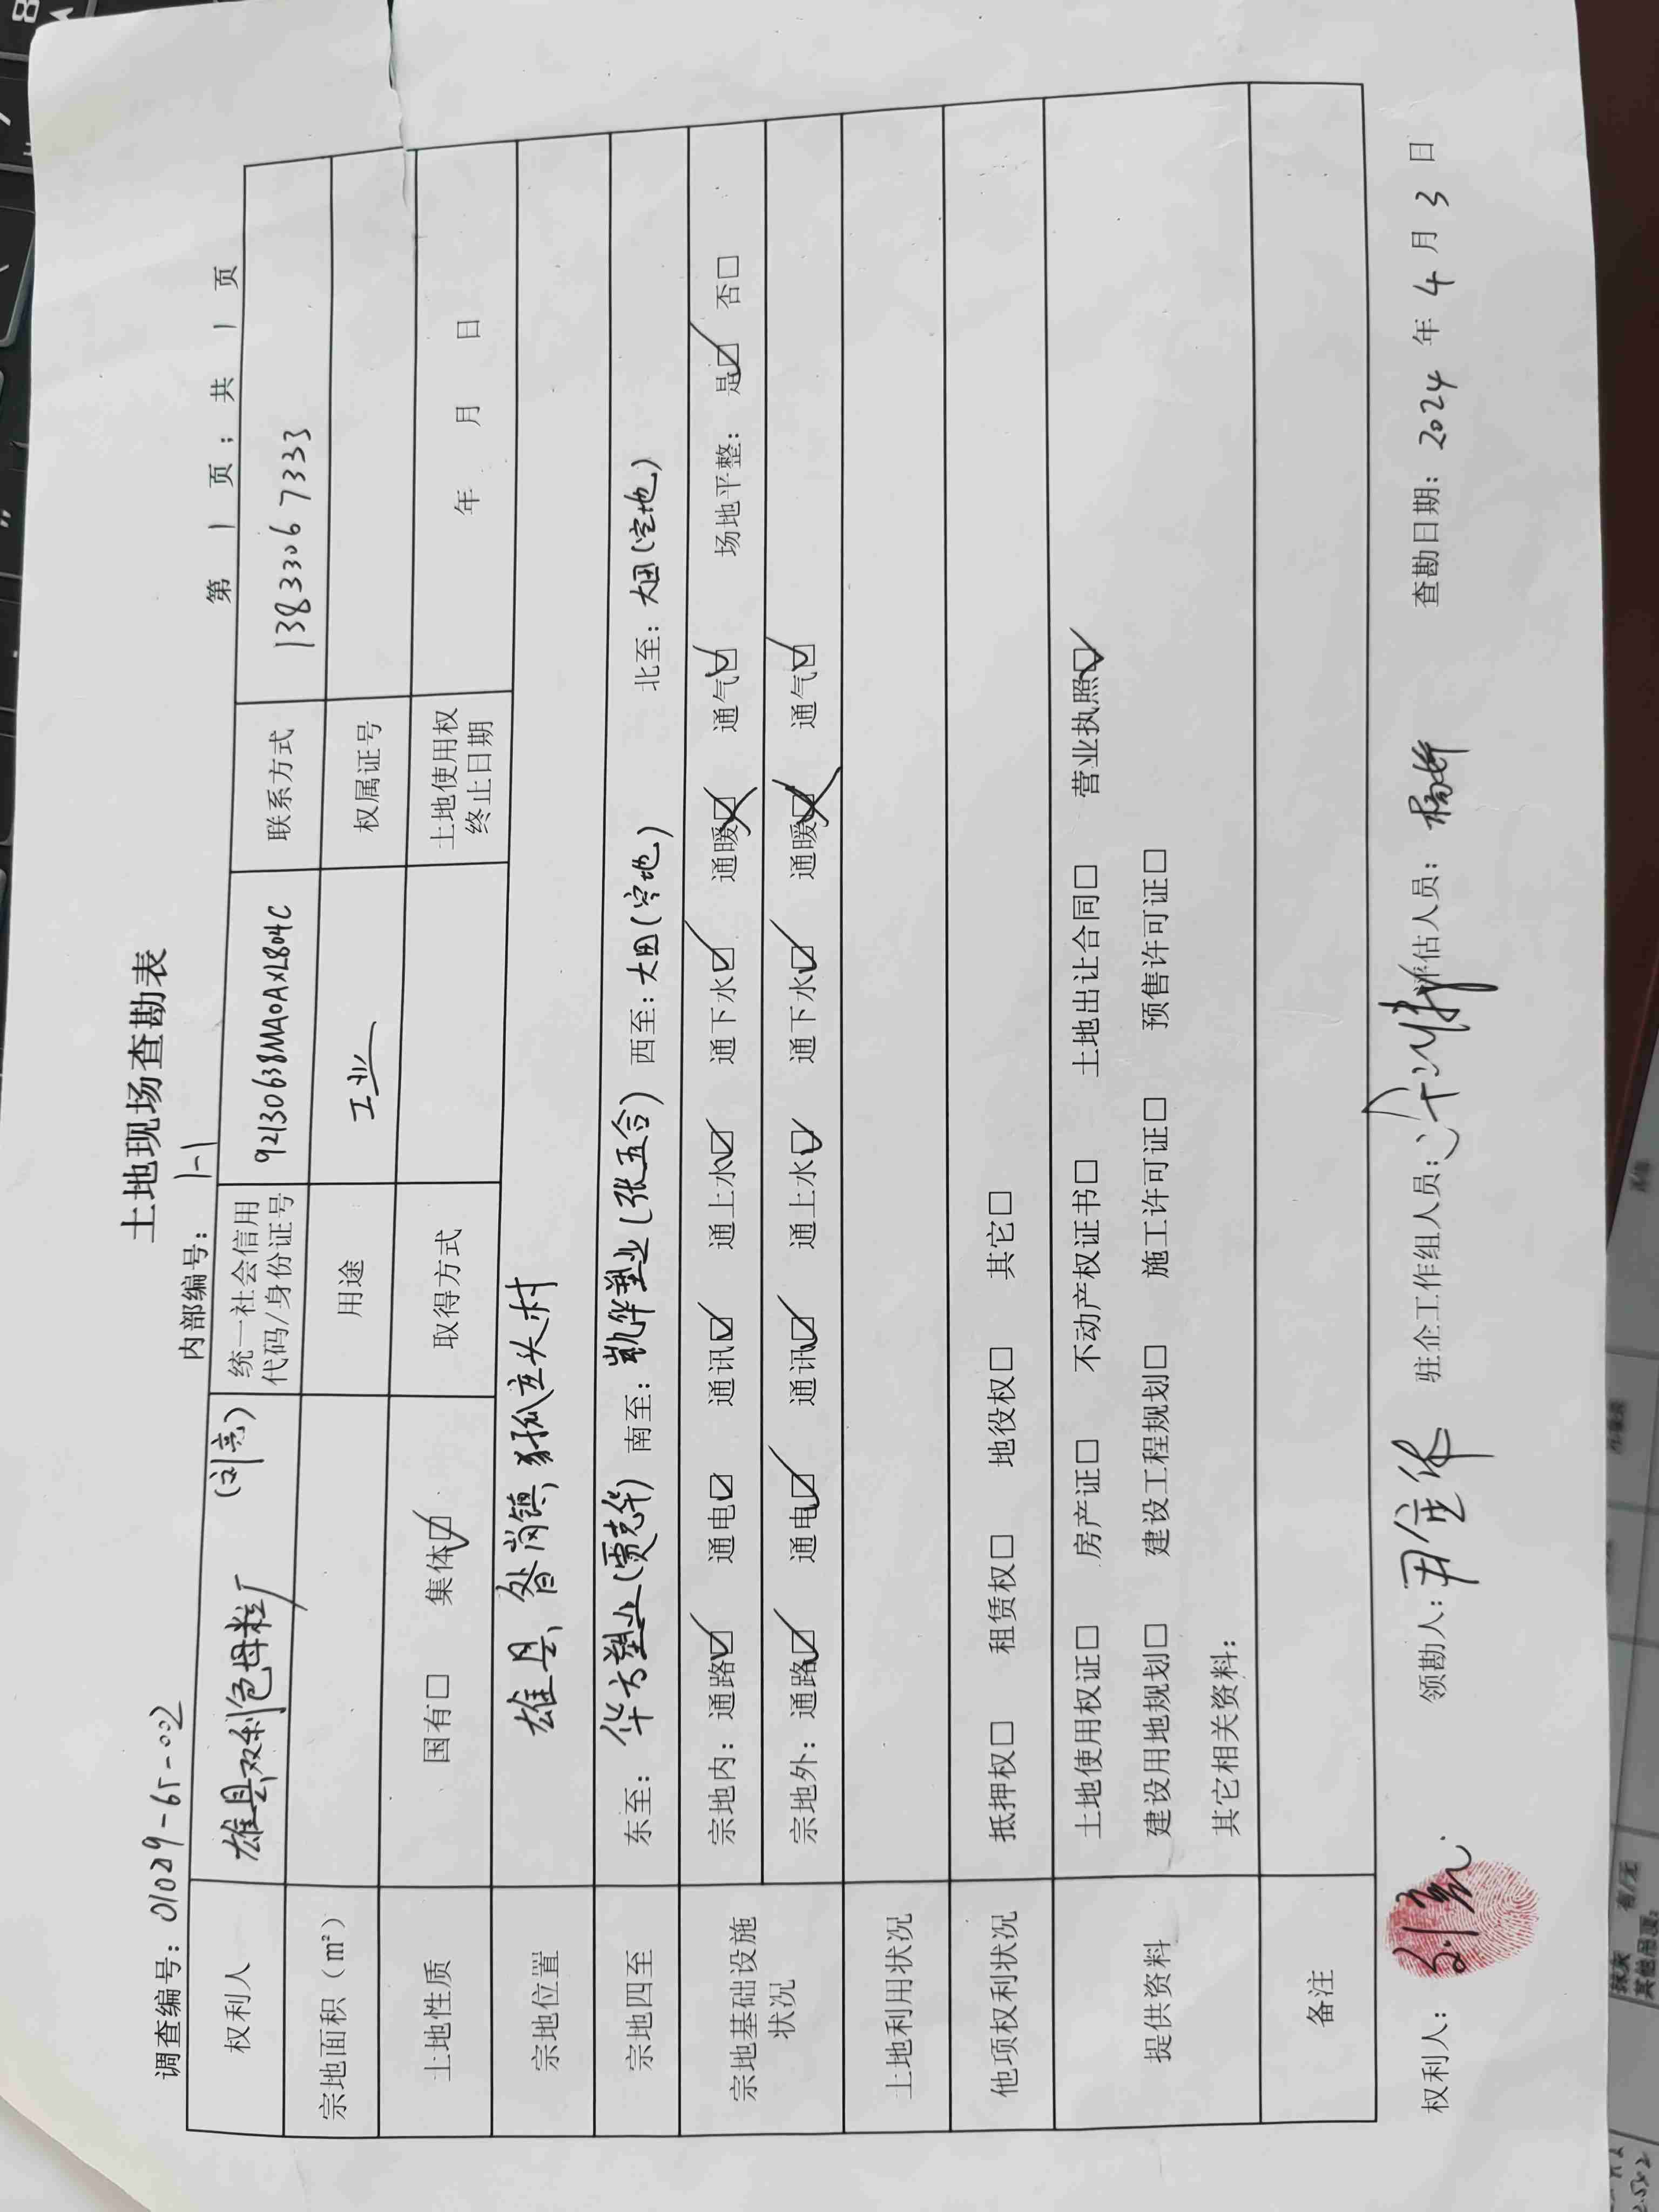 土地现场查勘表
调查编号：01029-65-002 内部编号：1-1 第 1 页；共 1 页
权利人 雄县双利色母粒厂（刘亮） 统一社会信用代码/身份证号 92130638MA0AXL804C 联系方式 13833067333
宗地面积（㎡） 用途 工业 权属证号
土地性质 国有□ 集体☑ 取得方式 土地使用权终止日期 年 月 日
宗地位置 雄县、昝岗镇、豺孤立头村
宗地四至 东至：华方塑业（贾克华） 南至：凯华塑业（张五合） 西至：大田（空地） 北至：大田（空地）
宗地基础设施状况 宗地内：通路☑ 通电☑ 通讯☑ 通上水☑ 通下水☑ 通暖☒ 通气☑ 场地平整：是☑ 否□
宗地外：通路☑ 通电☑ 通讯☑ 通上水☑ 通下水☑ 通暖☒ 通气☑
土地利用状况
他项权利状况 抵押权□ 租赁权□ 地役权□ 其它□
提供资料 土地使用权证□ 房产证□ 不动产权证书□ 土地出让合同□ 营业执照☑
建设用地规划□ 建设工程规划□ 施工许可证□ 预售许可证□
其它相关资料：
备注
权利人： 领勘人： 驻企工作组人员： 评估人员： 查勘日期：2024 年 4 月 3 日